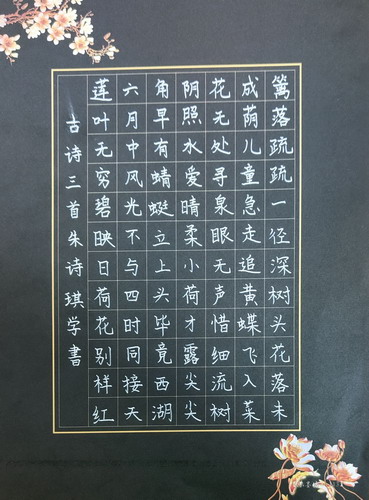 篱落疏疏一径深树头花落未
成荫儿童急走追黄蝶飞入菜
花无处寻泉眼无声惜细流树
阴照水爱晴柔小荷才露尖尖
角早有蜻蜓立上头毕竟西湖
六月中风光不与四时同接天
莲叶无穷碧映日荷花别样红
古诗三首朱诗琪学書